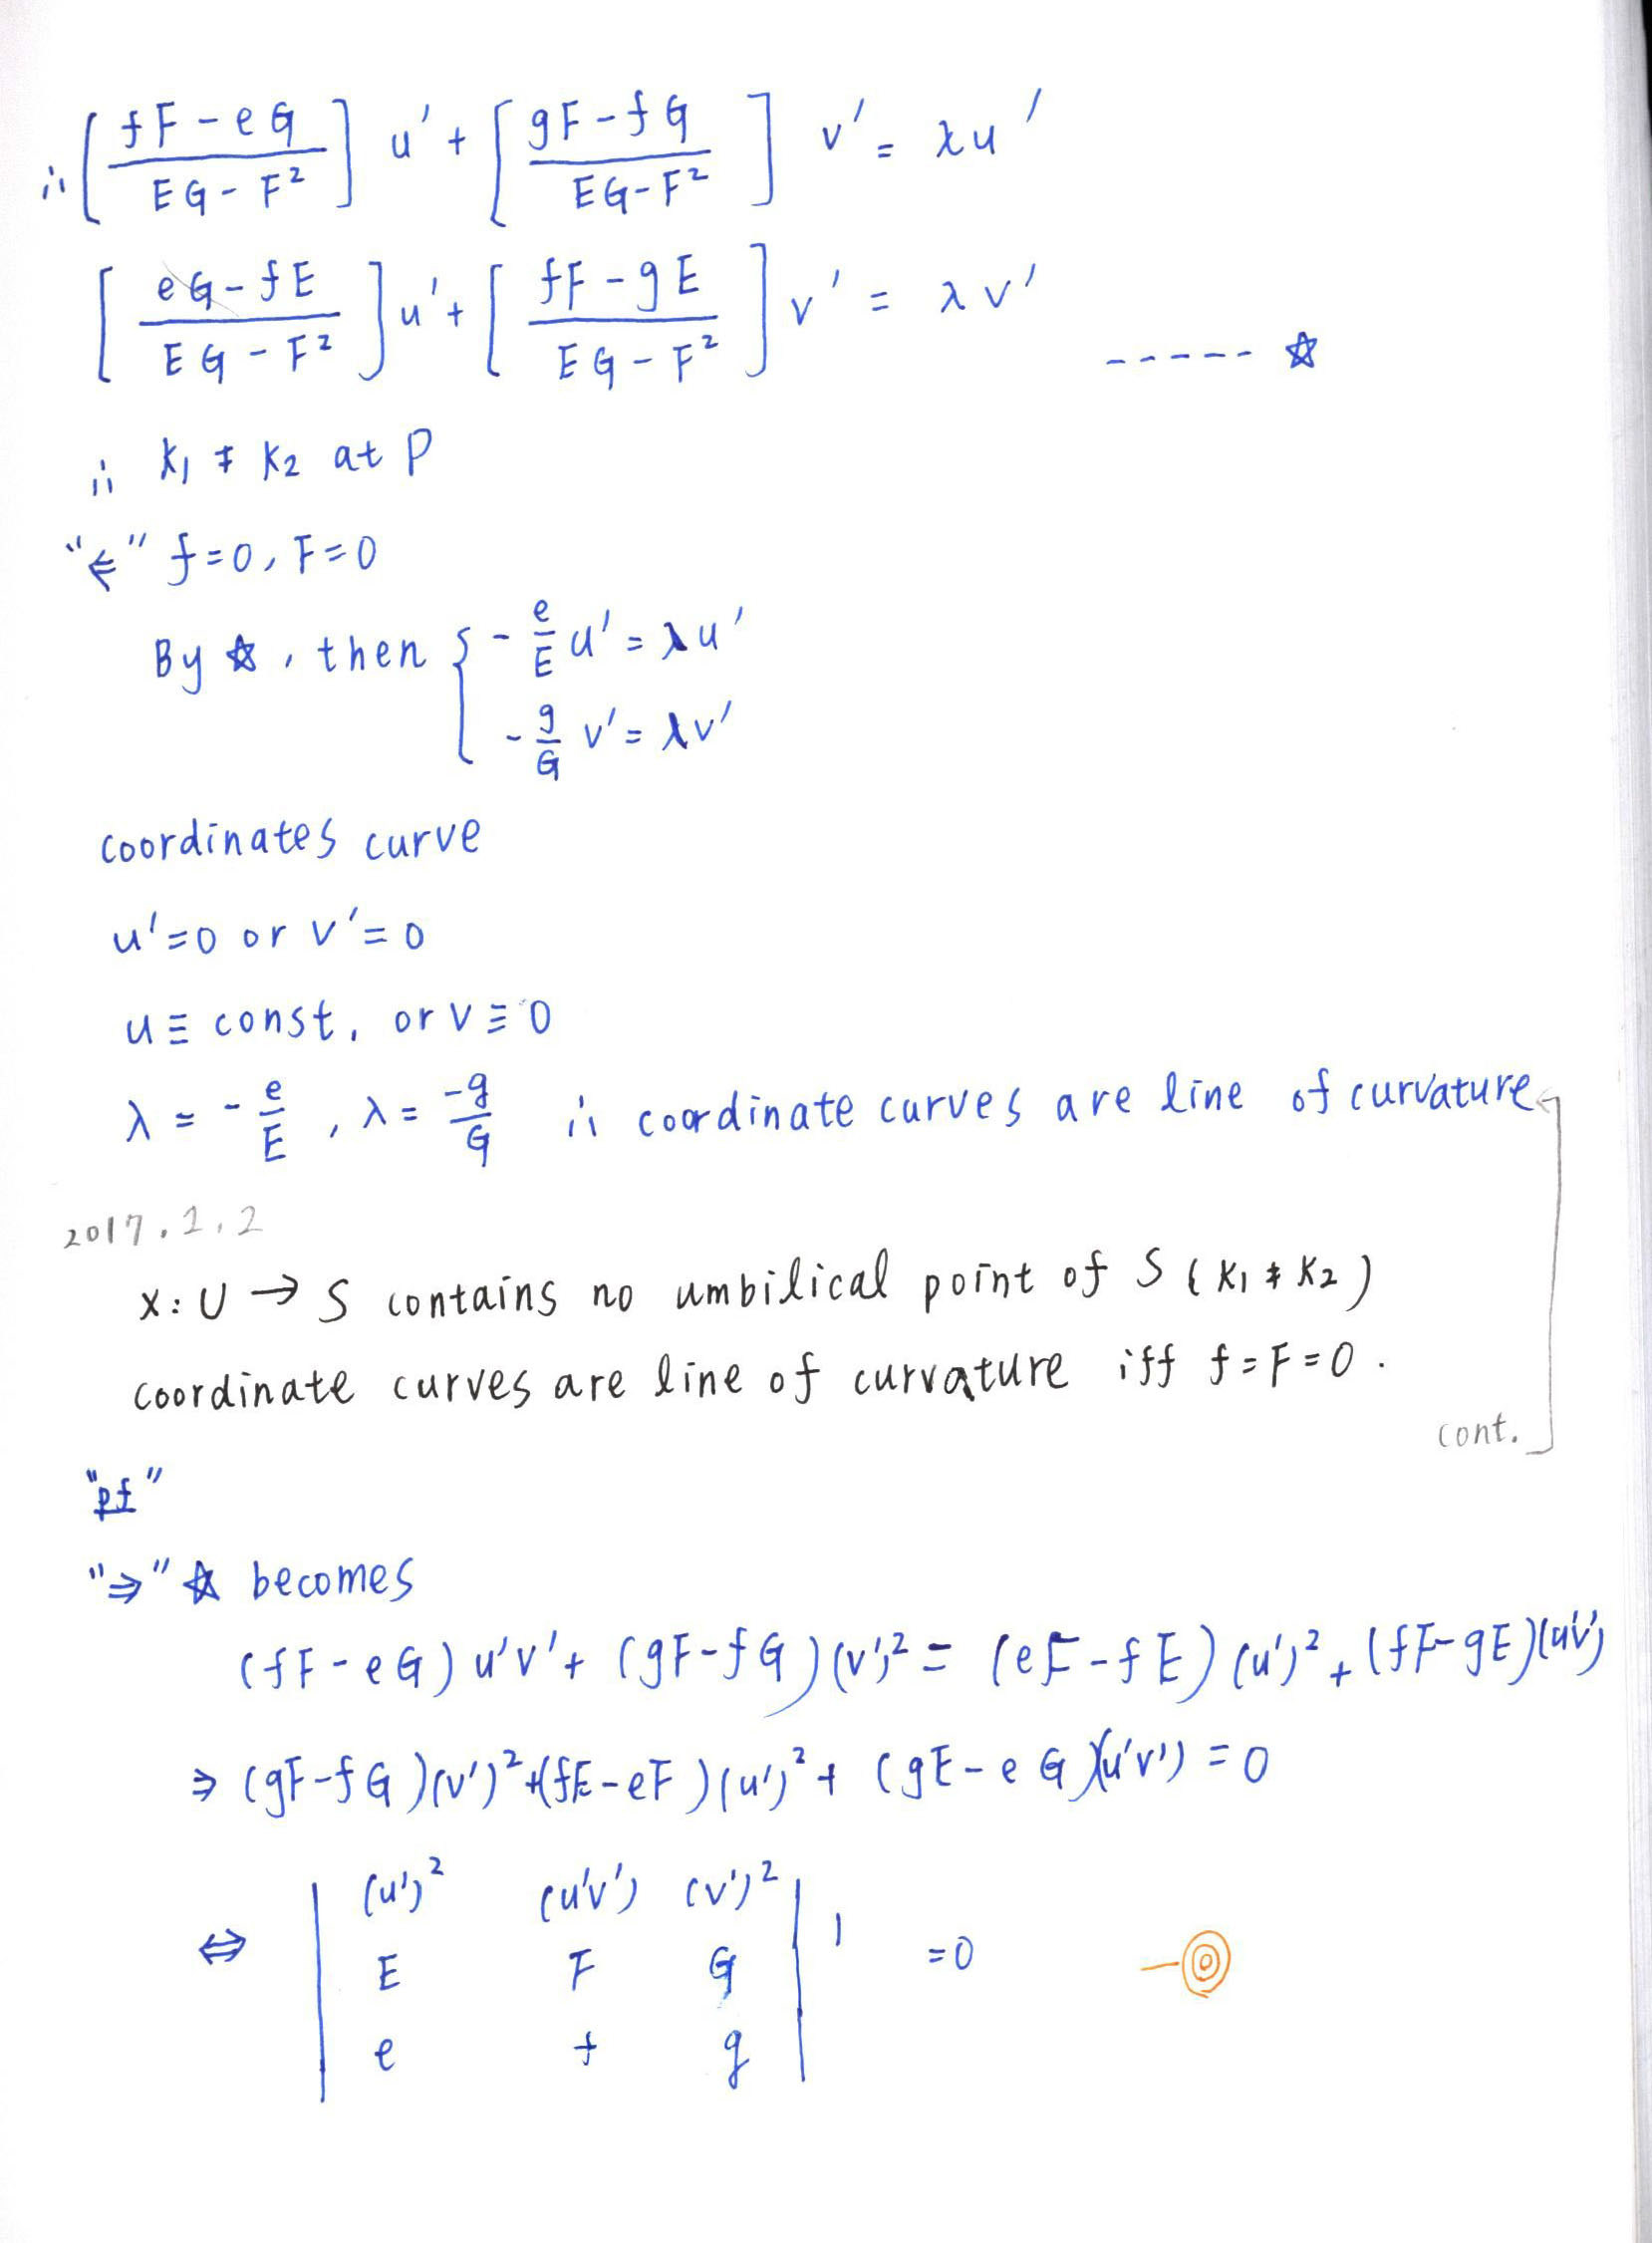 ∴ [ (fF - eG) / (EG - F²) ] u' + [ (gF - fG) / (EG - F²) ] v' = λu'
[ (eG - fE) / (EG - F²) ] u' + [ (fF - gE) / (EG - F²) ] v' = λv'
----- ☆
∵ K₁ ≠ K₂ at P
"⇐" f=0, F=0
By ☆, then { - e/E u' = λu'
- g/G v' = λv'
coordinates curve
u'=0 or v'=0
u ≡ const, or v ≡ 0
λ = - e/E , λ = -g/G ∴ coordinate curves are line of curvature
2017.1.2
X: U → S contains no umbilical point of S (K₁ ≠ K₂)
coordinate curves are line of curvature iff f=F=0.
cont.
"pf"
"⇒" ☆ becomes
(fF - eG) u'v' + (gF - fG)(v')² = (eF - fE)(u')² + (fF - gE)(u'v')
⇒ (gF - fG)(v')² + (fE - eF)(u')² + (gE - eG)(u'v') = 0
⇔ | (u')² (u'v') (v')² |
E F G | = 0 -◎
e f g